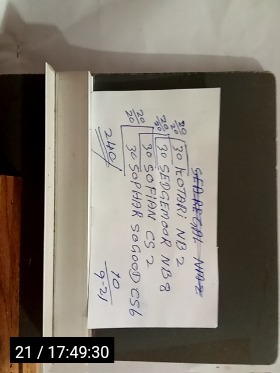 20 20 30 KOTARI NB 2
20 20 30 SEDGEMOOR NB 8
30 SOFIAN CS 2
20 20 30 SOPHAR SOGOOD CS6
240
10
9-21
21 / 17:49:30